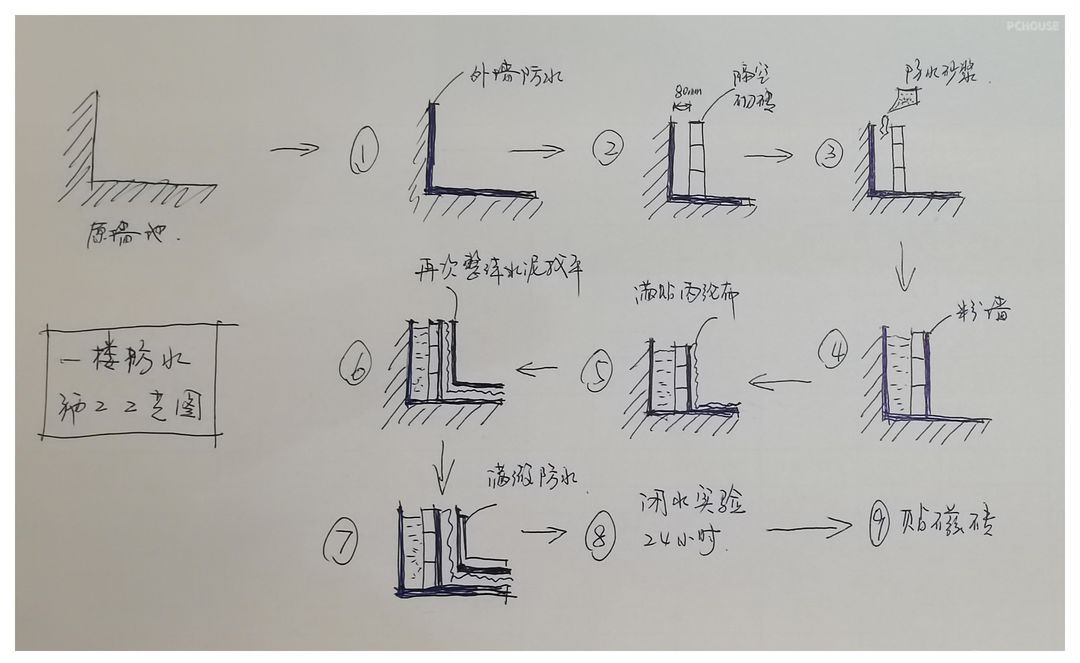 PCHOUSE
外墙防水
80mm
隔空
砌砖
防水砂浆.
①
②
③
原墙地.
再次整体水泥找平
满贴丙纶布
粉墙
④
⑤
⑥
一楼防水
施工工艺图
满做防水.
⑦
⑧
闭水实验
24小时.
⑨ 贴磁砖